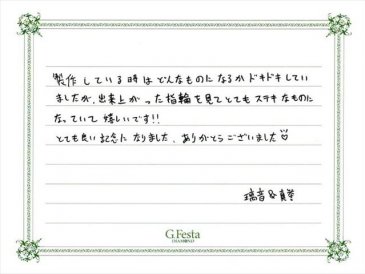 製作している時はどんなものになるかドキドキしてい
ましたが、出来上がった指輪を見てとてもステキなものに
なっていて嬉しいです!!
とても良い記念になりました、ありがとうございました
&
G.Festa
DIAMOND